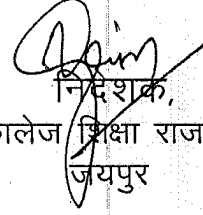 निदेशक,
ालेज शिक्षा राज
जयपुर